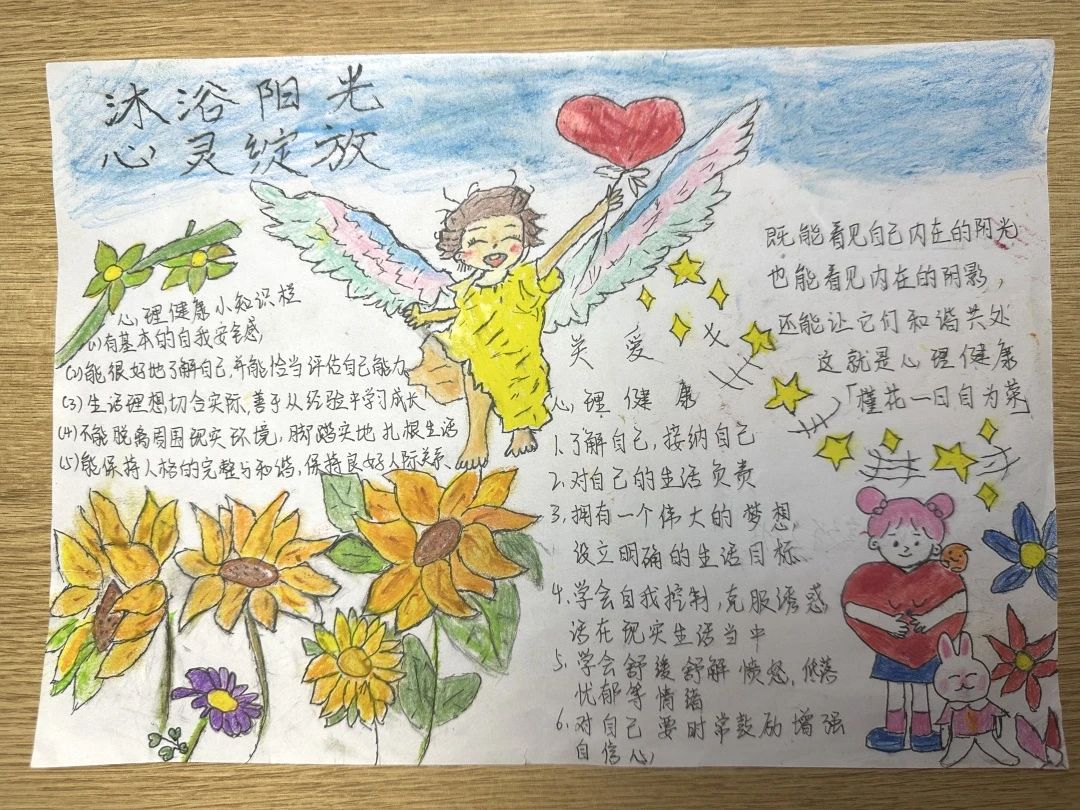 沐浴阳光
心灵绽放
心理健康小知识栏
(1)有基本的自我安全感,
(2)能很好地了解自己,并能恰当评估自己能力
(3)生活理想切合实际,善于从经验中学习成长
(4)不能脱离周围现实环境,脚踏实地扎根生活
(5)能保持人格的完整与和谐,保持良好人际关系.
关爱
心理健康
1.了解自己,接纳自己
2.对自己的生活负责
3.拥有一个伟大的梦想,
设立明确的生活目标.
4.学会自我控制,克服诱惑
活在现实生活当中
5.学会舒缓舒解愤怒,低落
忧郁等情绪
6.对自己要时常鼓励增强
自信心
既能看见自己内在的阳光
也能看见内在的阴影,
还能让它们和谐共处
这就是心理健康
「槿花一日自为荣